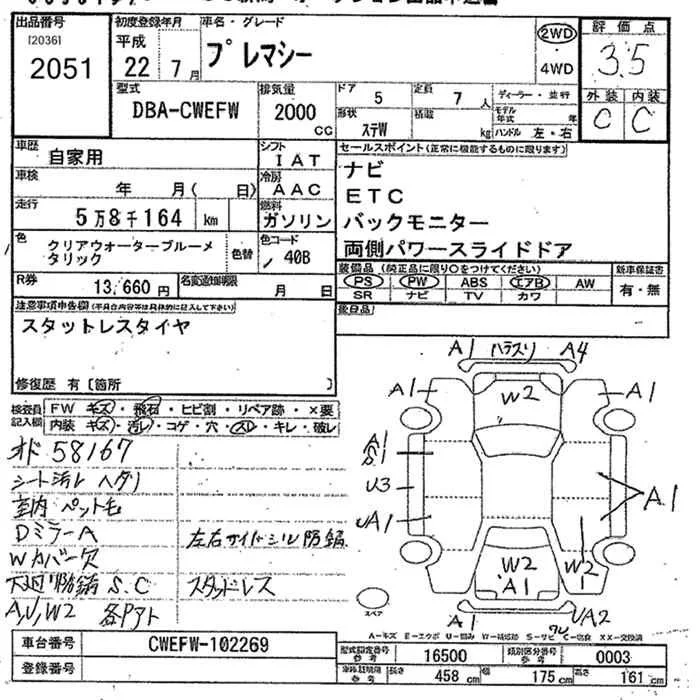 出品番号
[2036]
2051
初度登録年月
平成
22 7月
車名・グレード
プレマシー
2WD
4WD
評価点
3.5
外装 内装
C C
型式
DBA-CWEFW
排気量
2000
CC
ドア
5
定員
7人
ディーラー・並行
形状
ステW
積載
kg
モデル年式
年
ハンドル 左・右
車歴
自家用
シフト
IAT
車検
年 月( 日)
冷房
AAC
走行
5万8千164 km
燃料
ガソリン
色
クリアウォーターブルーメタリック
色替
色コード
40B
R券
13,660円
名変通知期限
月 日
セールスポイント(正常に機能するものに限ります)
ナビ
ETC
バックモニター
両側パワースライドドア
装備品(純正品に限り○をつけてください)
PS PW ABS エアB AW
SR ナビ TV カワ
新車保証書
有・無
後日品
注意事項申告欄(不具合内容等は具体的に記入して下さい)
スタットレスタイヤ
修復歴 有〔箇所 〕
検査員記入欄
FW キズ・飛石・ヒビ割・リペア跡・×要
内装 キズ・汚レ・コゲ・穴・スレ・キレ・破レ
オド 58167
シート汚レ ヘタリ
室内 ペット毛
DミラーA
Wカバー欠
下廻り防錆 S.C
A,U,W2 各Pアト
左右サイドシル防錆
スタッドレス
A1 ハラスリ A4
A1
W2
A1
A1
S1
U3
UA1
A1
W2
W2
A1
スペア
A1
UA2
A-キズ E-エクボ U-凹み W-補修跡 S-サビ C-腐食 XX-交換済
車台番号
CWEFW-102269
登録番号
型式指定番号
参考
16500
類別区分番号
参考
0003
車体証明車
参考
長さ
458 cm
幅
175 cm
高さ
161 cm